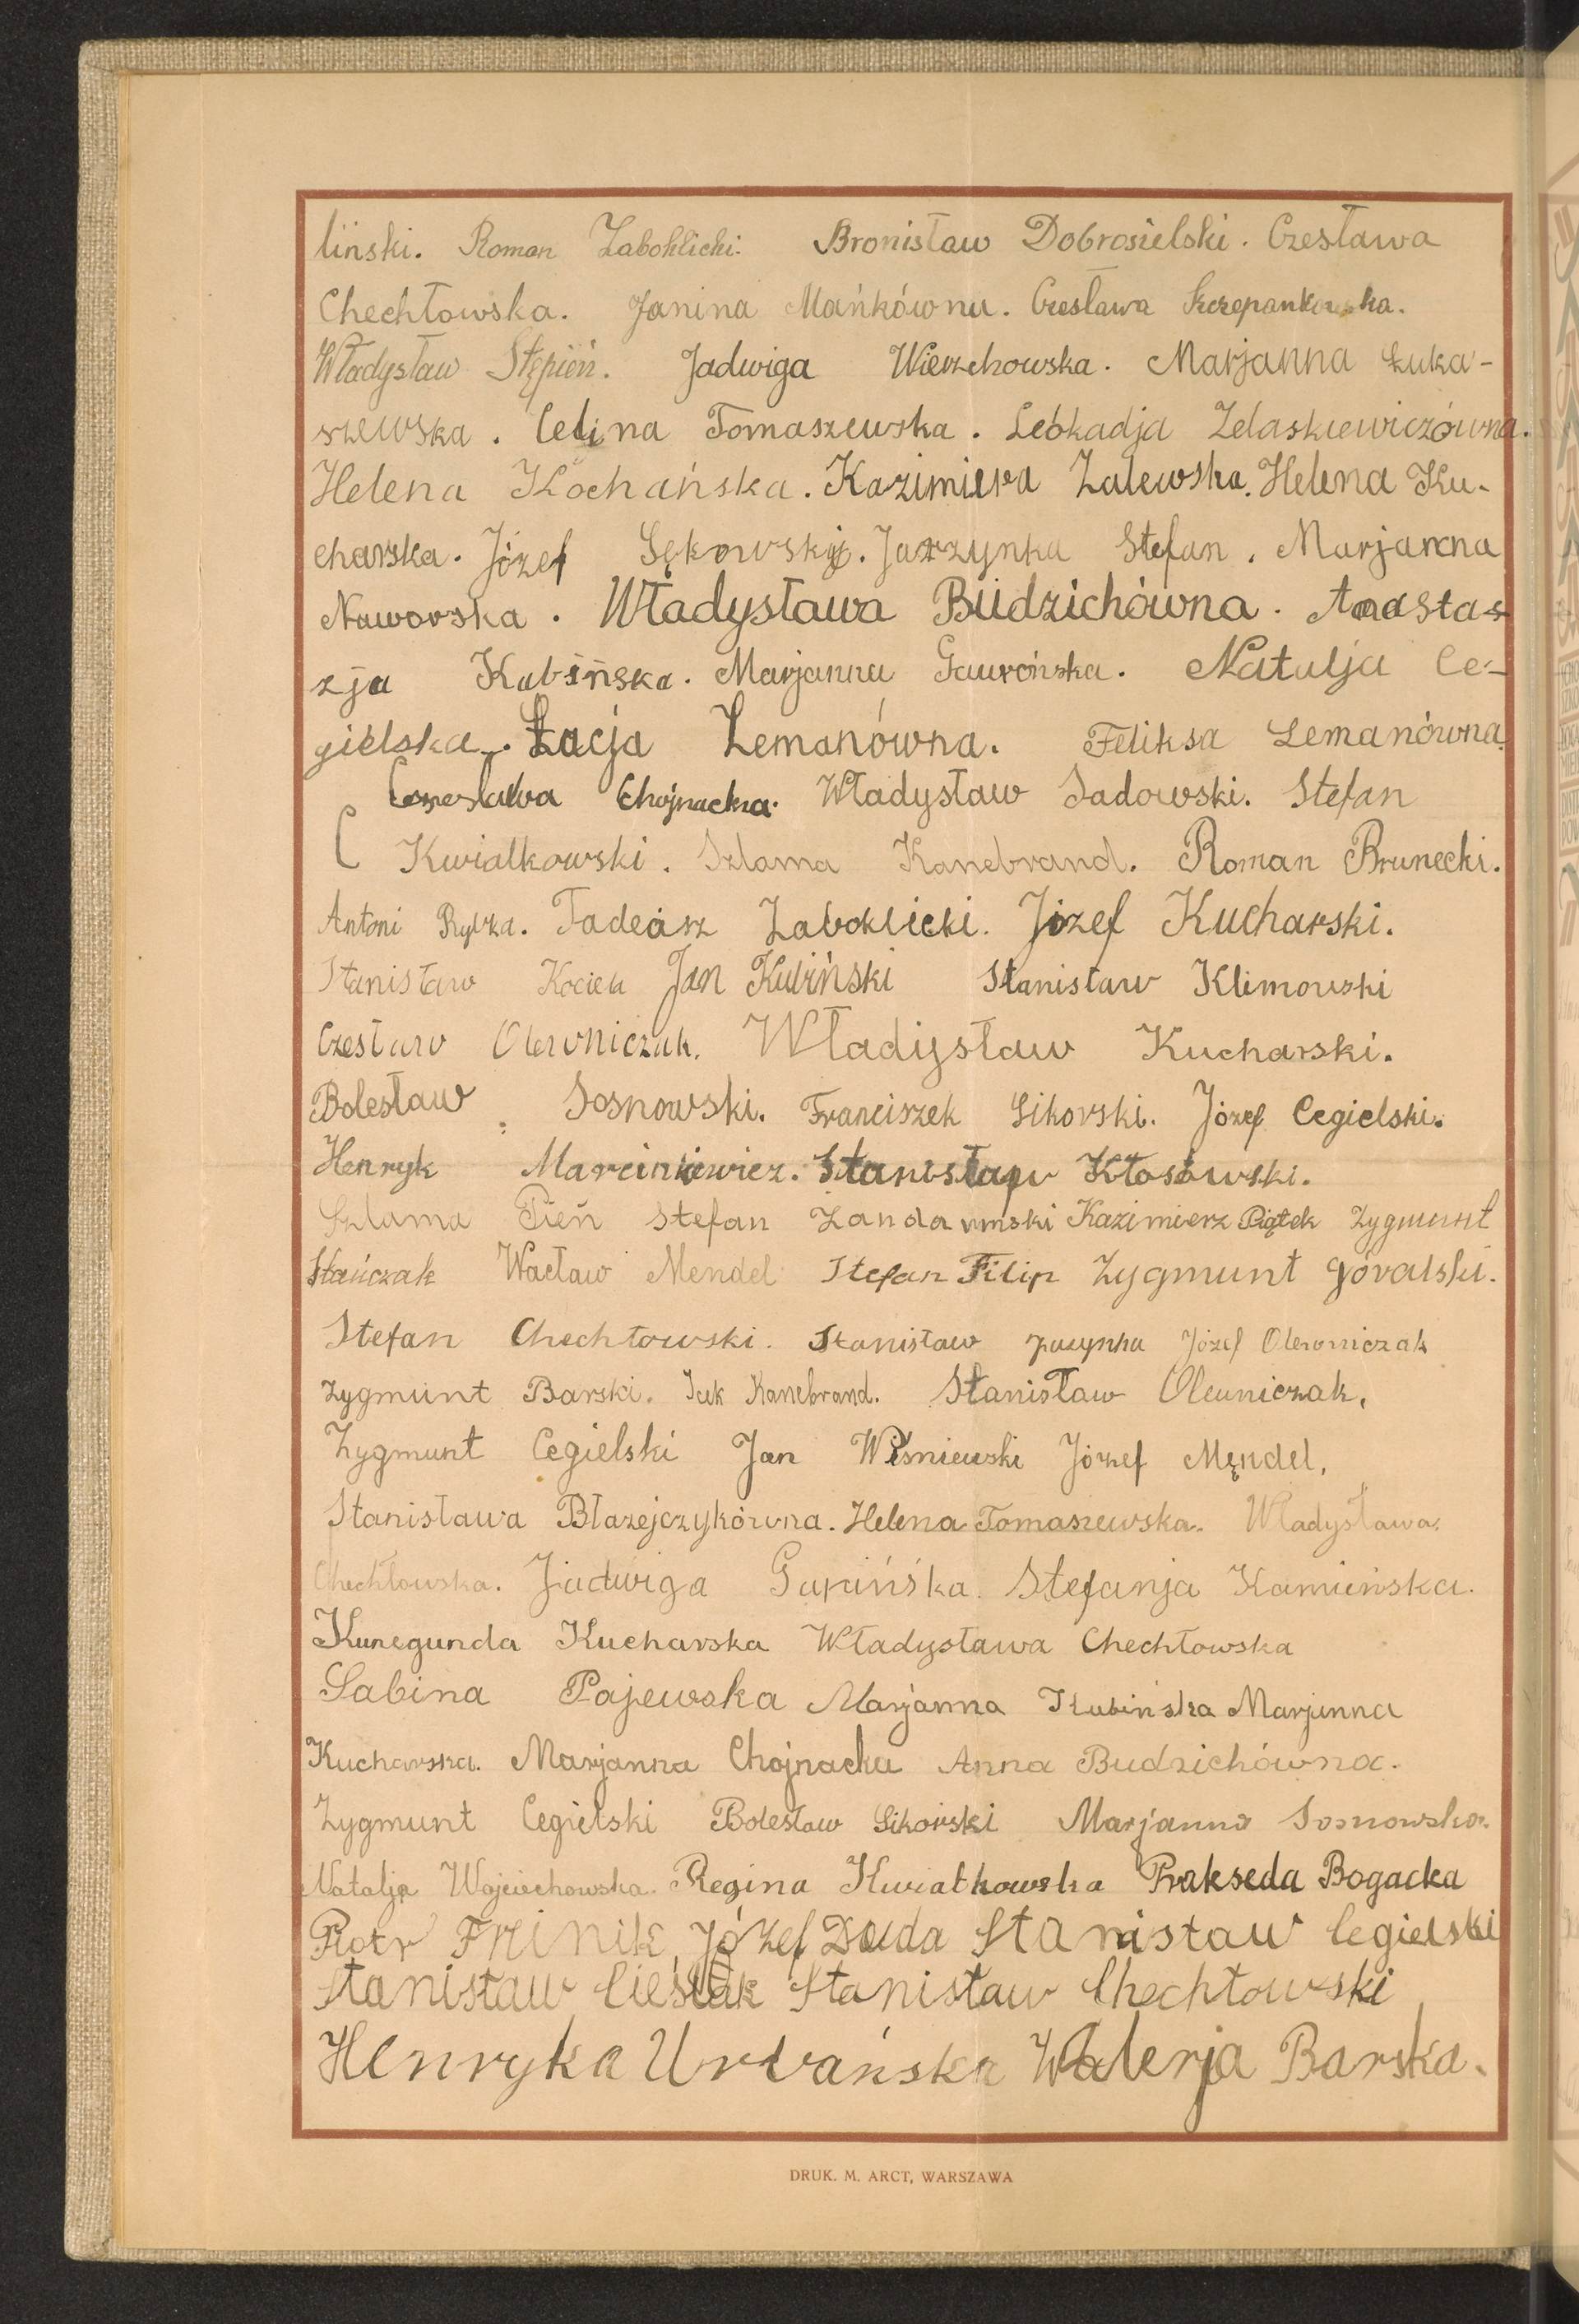 liński. Roman Zaboklicki. Bronisław Dobrosielski. Czesława
Chechłowska. Janina Mańkówna. Czesława Szczepankowska.
Władysław Stępień. Jadwiga Wierzchowska. Marjanna Łuka-
szewska. Celina Tomaszewska. Leokadja Żelaskiewiczówna.
Helena Kochańska. Kazimiera Zalewska. Helena Ku-
charska. Józef Sękowski. Jarzynka Stefan. Marjanna
Naworska. Władysława Budzichówna. Anastas-
zja Kubińska. Marjanna Gawrońska. Natalja Ce-
gielska. Łucja Lemanówna. Feliksa Lemanówna
Czesława Chojnacka. Władysław Sadowski. Stefan
Kwiatkowski. Szlama Kanebrand. Roman Brunecki.
Antoni Rybka. Tadeusz Zaboklicki. Józef Kucharski.
Stanisław Kocięła Jan Kubiński Stanisław Klimowski
Czesław Olewniczak. Władysław Kucharski.
Bolesław Sosnowski. Franciszek Sikorski. Józef Cegielski.
Henryk Marciniewicz. Stanisław Kłosowski.
Szlama Pień Stefan Kazimierz Piątek Zygmunt
Stańczak Wacław Mendel Stefan Filip Zygmunt Góralski.
Stefan Chechłowski. Stanisław Józef Olewniczak
Zygmunt Barski. Icek Kanebrand. Stanisław Olewniczak.
Zygmunt Cegielski Jan Wiśniewski Józef Mendel.
Stanisława Błażejczykówna. Helena Tomaszewska. Władysława
Chechłowska. Jadwiga Gapińska. Stefanja Kamieńska.
Kunegunda Kucharska Władysława Chechłowska
Sabina Pajewska Marjanna Kubińska Marjanna
Kucharska. Marjanna Chojnacka Anna Budzichówna.
Zygmunt Cegielski Bolesław Sikorski Marjanna Sosnowska
Natalja Wojciechowska. Regina Kwiatkowska Prakseda Bogacka
Piotr Józef Duda Stanisław Cegielski
Stanisław Cieślak Stanisław Chechłowski
Henryka Urbańska Walerja Barska.
DRUK. M. ARCT, WARSZAWA